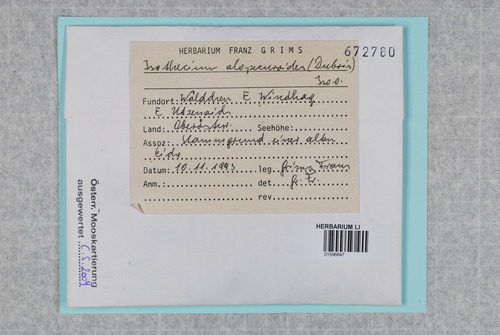 HERBARIUM FRANZ GRIMS
672780
Isothecium alopecuroides (Dubois)
Isov.
Fundort: E
E
Land: Oberösterr. Seehöhe:
Assoz: Stammgrund einer alten
Eiche
Datum: 10.11.1993 leg. Grims Franz
Anm.: det. Gr. Fr.
rev.
Österr. Mooskartierung
ausgewertet 2007
HERBARIUM LI
01596847